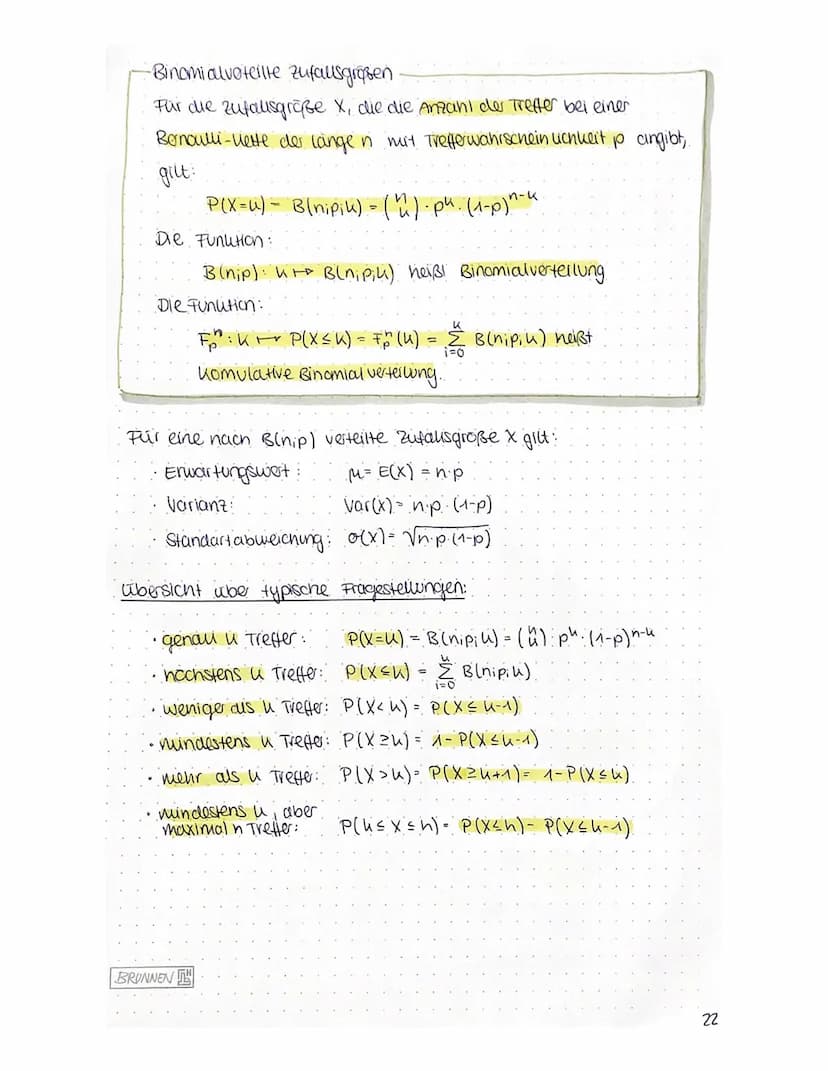 Binomialverteilte Zufallsgrößen
Für die Zufallsgröße X, die die Anzahl der Treffer bei einer
Bernoulli-Kette der Länge n mit Trefferwahrscheinlichkeit p angibt,
gilt:
P(X=k) = B(n;p;k) = (n k) · p^k · (1-p)^n-k
Die Funktion:
B(n;p): k ↦ B(n;p;k) heißt Binomialverteilung
Die Funktion:
F_p^n : k ↦ P(X≤k) = F_p^n(k) = Σ_{i=0}^k B(n;p;k) heißt
Komulative Binomialverteilung.
Für eine nach B(n;p) verteilte Zufallsgröße X gilt:
· Erwartungswert: μ = E(X) = n·p
· Varianz: Var(X) = n·p·(1-p)
· Standartabweichung: σ(X) = √n·p·(1-p)
Übersicht über typische Fragestellungen:
· genau k Treffer: P(X=k) = B(n;p;k) = (n k) · p^k · (1-p)^n-k
· höchstens k Treffer: P(X≤k) = Σ_{i=0}^k B(n;p;k)
· weniger als k Treffer: P(X<k) = P(X≤k-1)
· mindestens k Treffer: P(X≥k) = 1-P(X≤k-1)
· mehr als k Treffer: P(X>k) = P(X≥k+1) = 1-P(X≤k)
· mindestens k, aber
maximal h Treffer: P(k≤X≤h) = P(X≤h) - P(X≤k-1)
BRUNNEN
22